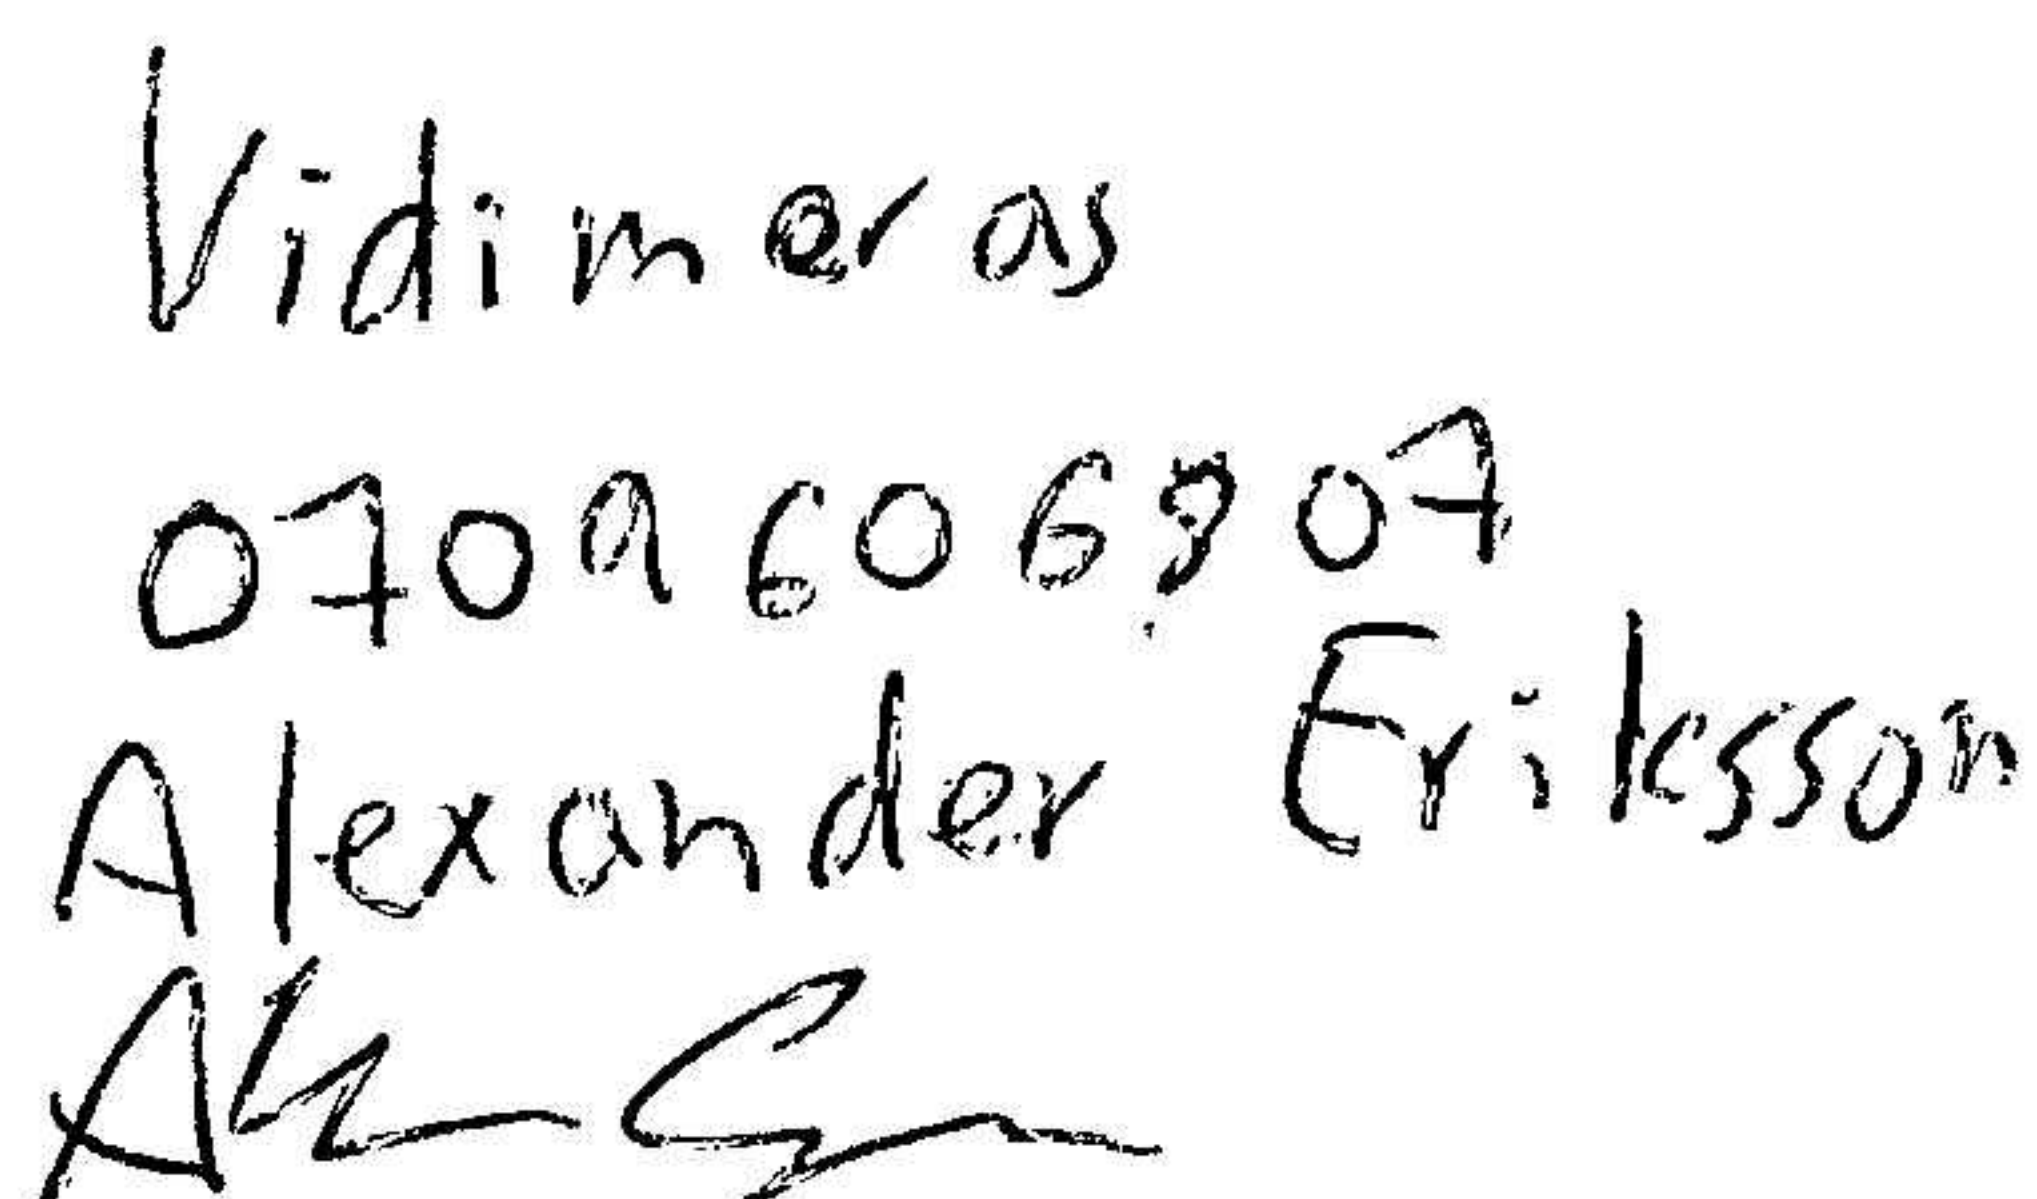 Vidimeras
0709606907
Alexander Eriksson